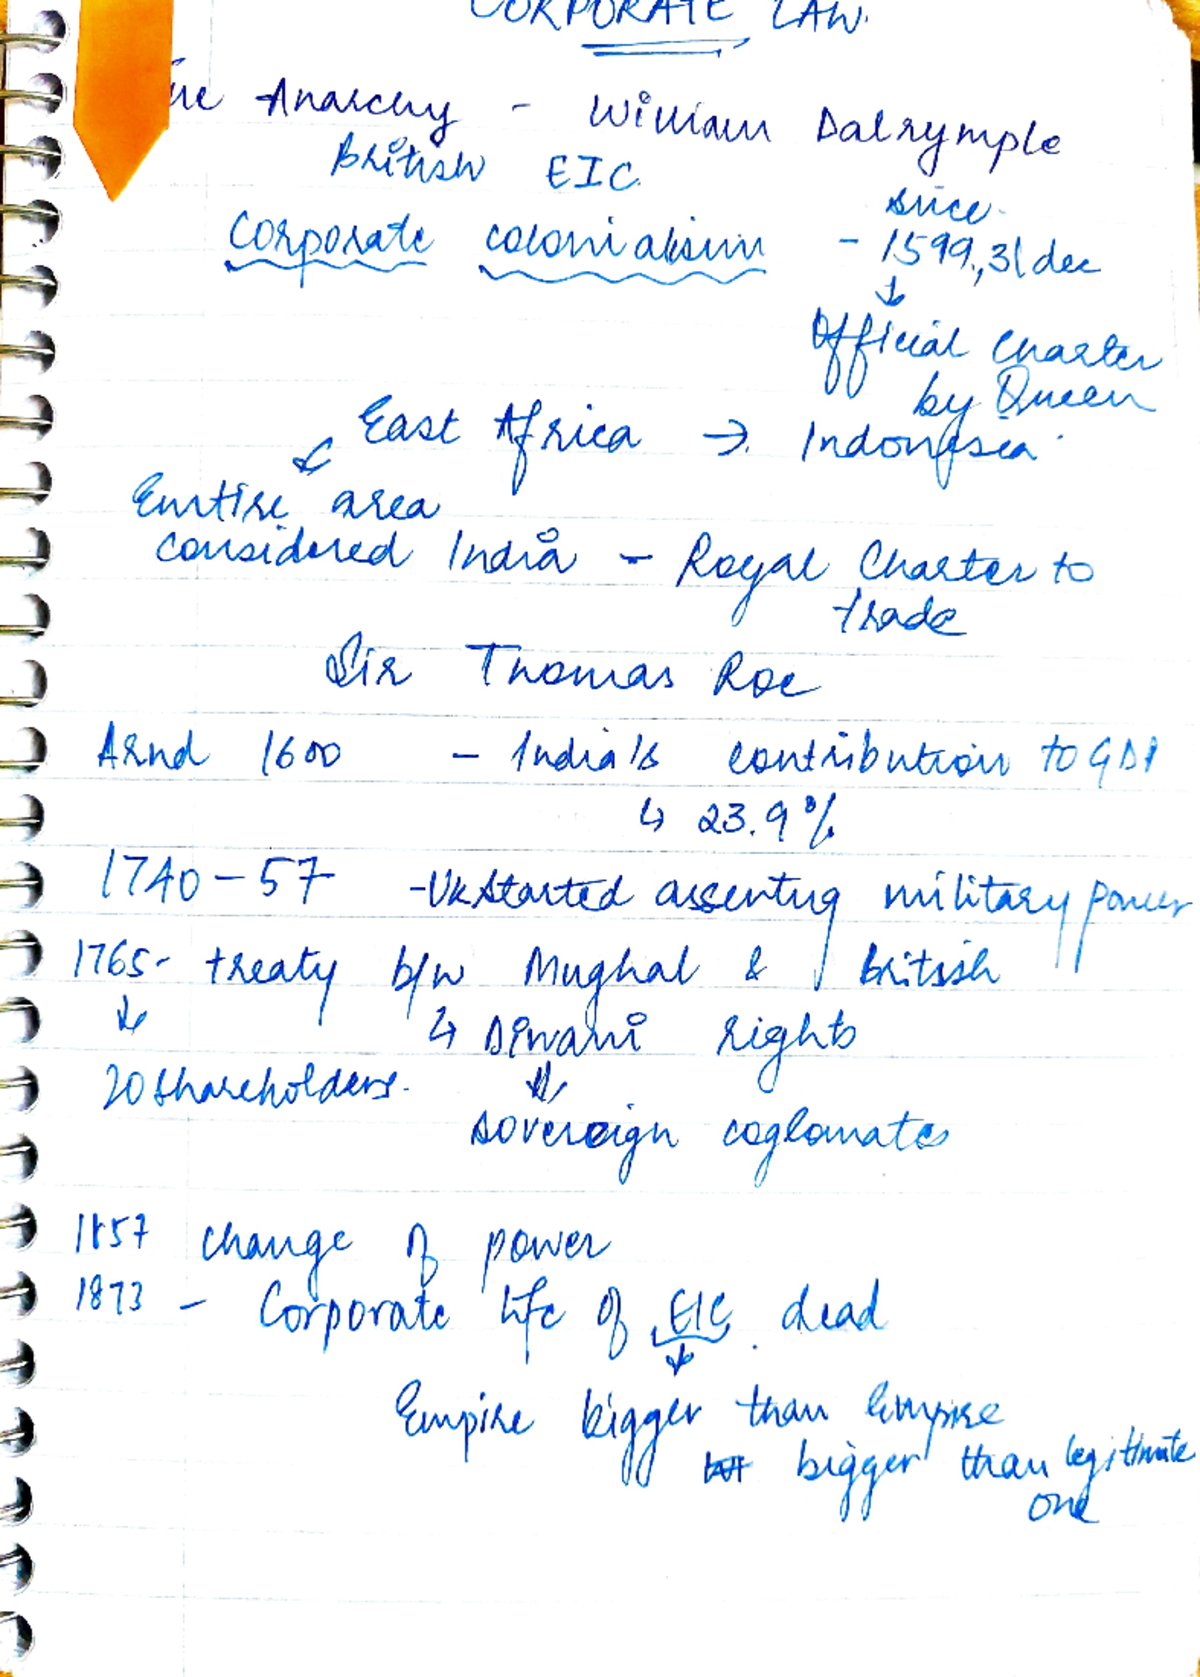 CORPORATE LAW.
The Anarchy - William Dalrymple
British EIC
since
Corporate colonialism - 1599, 31 dec
↓
Official Charter
by Queen
East Africa → Indonesia
Entire area
considered India - Royal Charter to
trade
Sir Thomas Roe
Arnd 1600 - India's contribution to GDP
↳ 23.9%
1740-57 - UK started asserting military power
1765- treaty b/w Mughal & British
↓ ↳ Diwani rights
20 shareholders. ⇓
sovereign coglomates
1857 change of power
1873 - Corporate life of EIC dead
↓
Empire bigger than Empire
bigger than legitimate
one